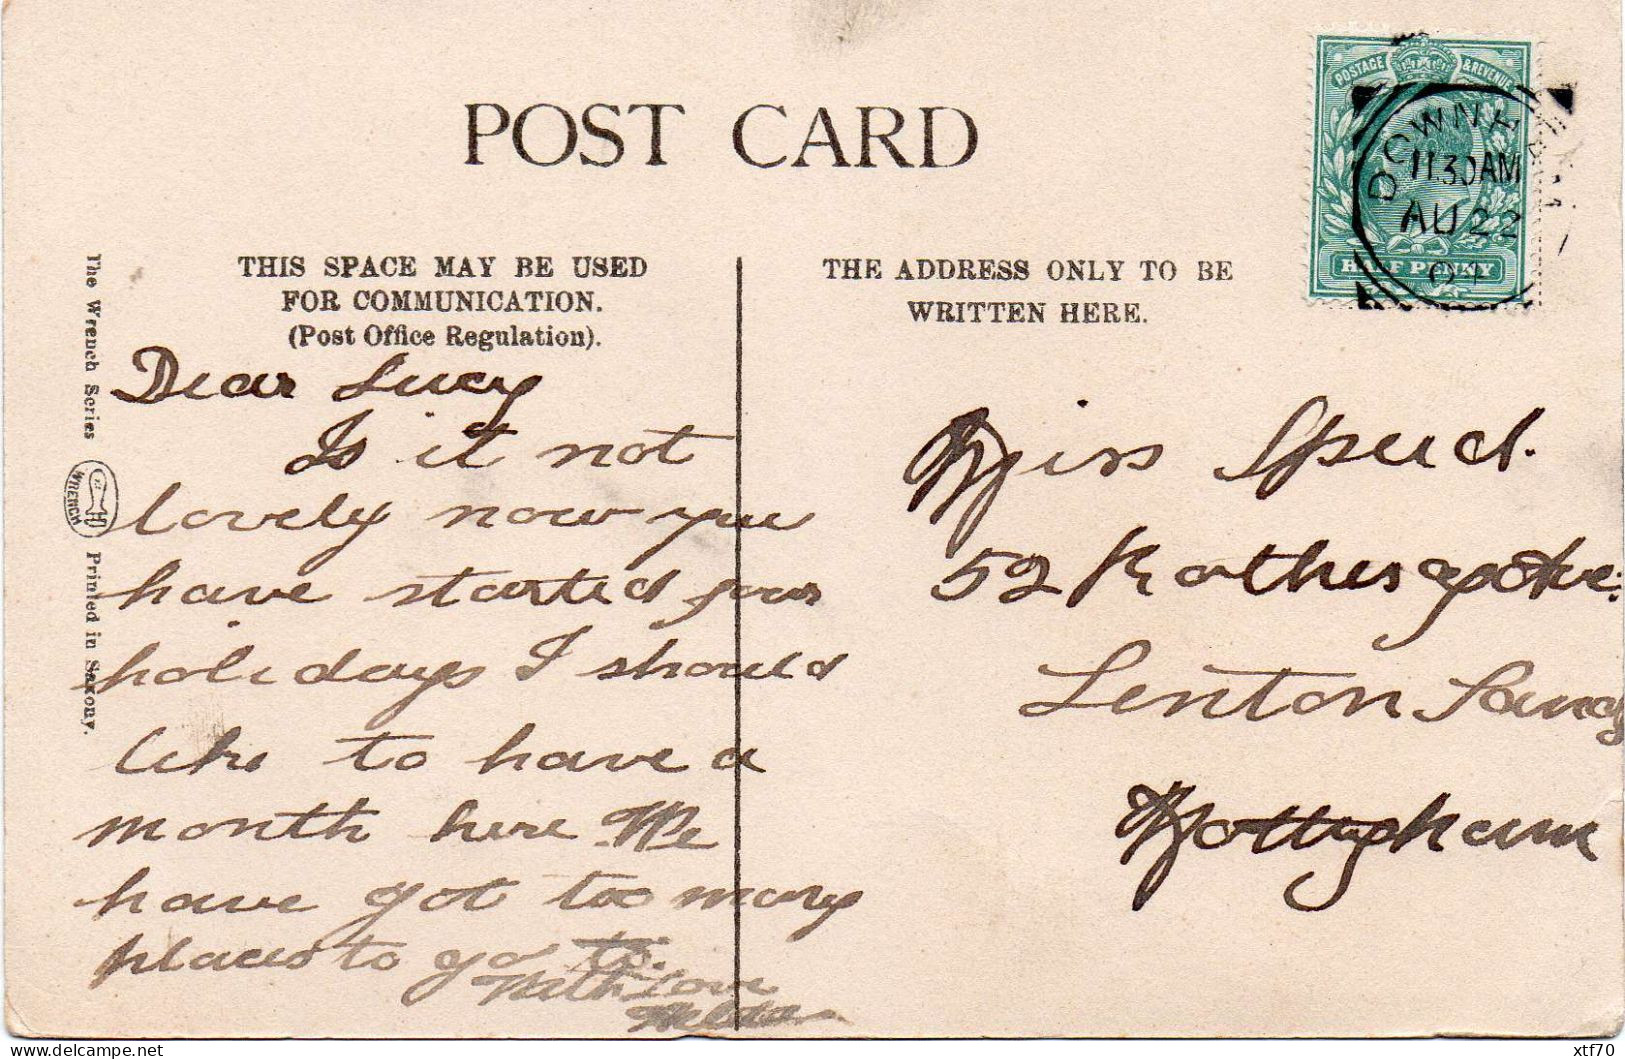 POST CARD
THIS SPACE MAY BE USED
FOR COMMUNICATION.
(Post Office Regulation).
THE ADDRESS ONLY TO BE
WRITTEN HERE.
POSTAGE & REVENUE
HALF PENNY
DOWNE
11.30AM
AU 22
The Wrench Series
WRENCH
Printed in Saxony.
Dear Lucy
Is it not
lovely now you
have started your
holidays I should
like to have a
month here We
have got too many
places to go to.
With Love
Miss
52 Rothesay Ave:
Lenton Sands
Nottingham
xtf70
delcampe.net